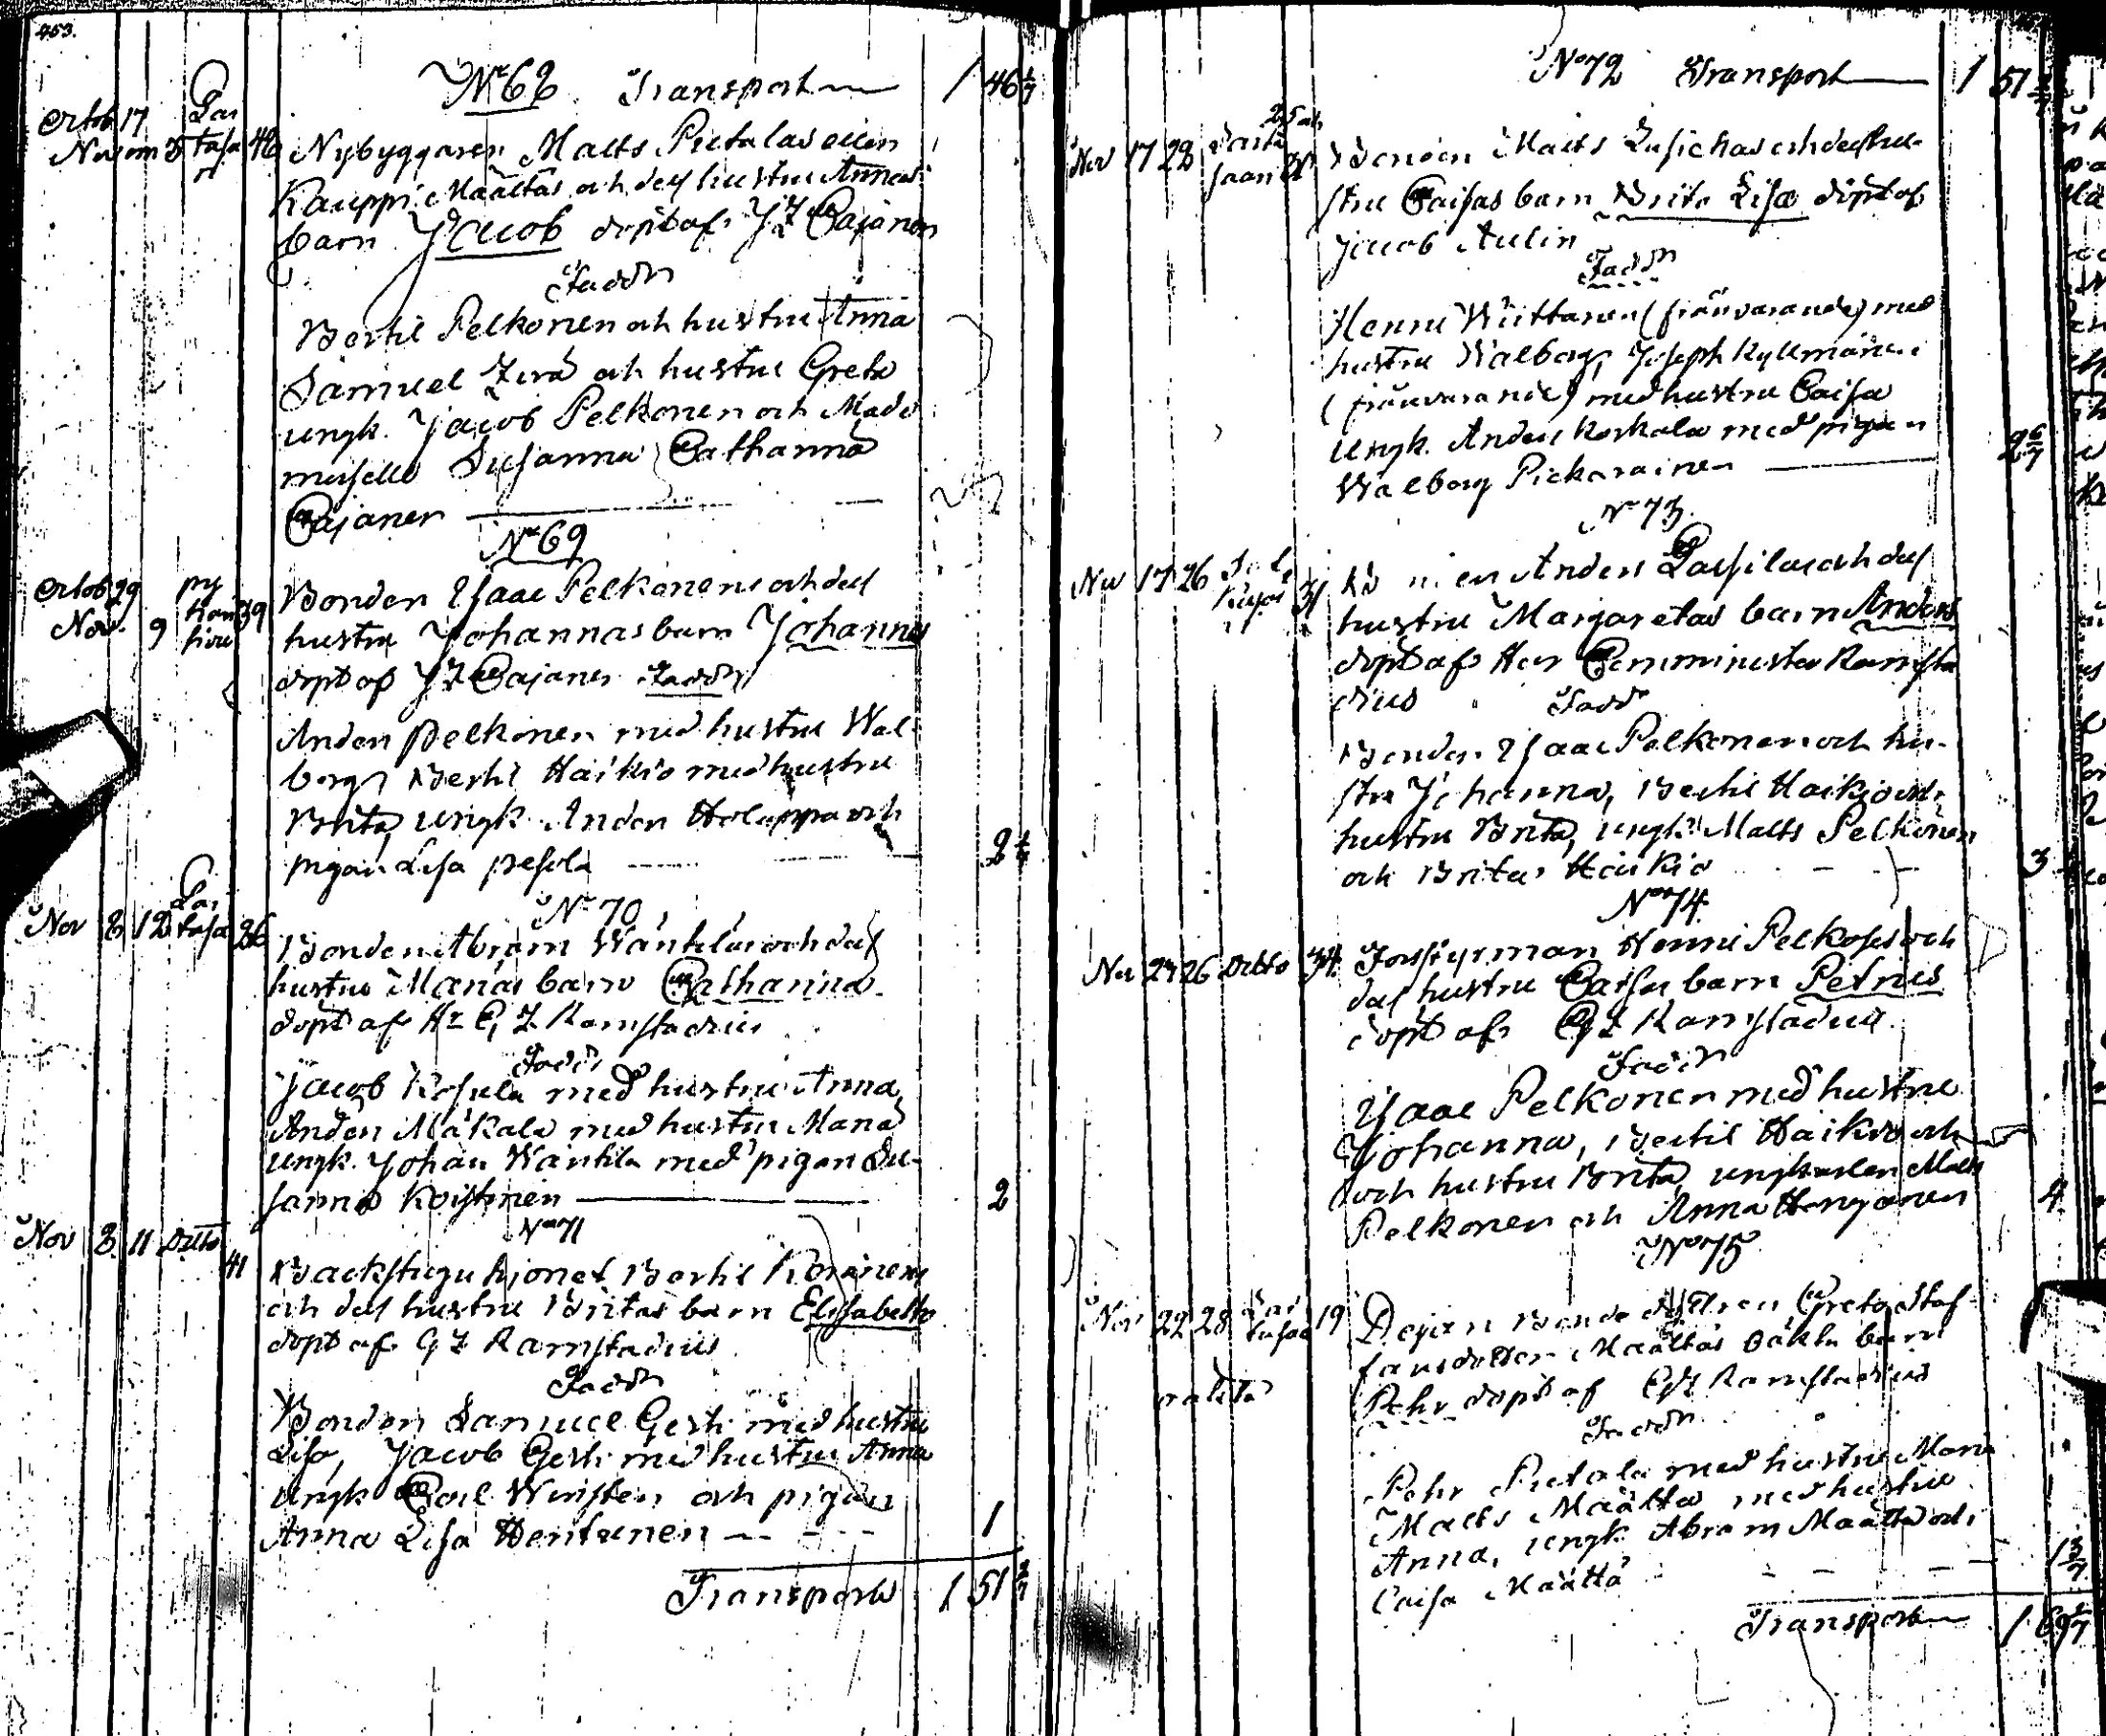 453.
No 68 Transport 1 46
Octob 17
Novem 5
Nybyggaren Matts Pietalas eller
Kauppi Määttäs och dess hustru Annas
barn Jacob döpt af J Z Cajanen
Fadd
Bertil Pelkonen och hustru Anna
Samuel och hustru Greta
ungk. Jacob Pelkonen och Made
moiselle Susanna Catharina
Cajaner
No 69
Octob 29
Nov. 9 39
Bonden Isaac Pelkonens och dess
hustru Johannas barn Johannes
döpt af J Z Cajaner Fadd
Anders Pelkonen med hustru Wal-
borg, Bertil Haikio med hustru
Brita, ungk. Anders Holappa och
pigan Lisa Pesola 2
No 70
Nov 8 12 26
Bonden Abram Wäntiläs och dess
hustru Marias barn Catharina
döpt af Hr C Z Ramstadius
Fadd
Jacob Kosula med hustru Anna
Anders Mäkälä med hustru Maria
ungk. Johan Wäntilä med pigan Su-
sanna Koistinen 2
No 71
Nov 8 11 Ditto 41
Backstugu hjonet Bertil
och dess hustru Britas barn Elisabeth
döpt af C Z Ramstadius
Fadd
Bonden Samuel Gesti med hustru
Lisa, Jacob Gesti med hustru Anna
ungk Carl Winsten och pigan
Anna Lisa Hentunen 1
Transport 1 51
No 72 Transport 1 51
Nov 17 22
Bonden Matts och dess hu-
stru Caisas barn Brita Lisa döpt af
Jacob Aulin
Fadd
Henric Wiittanen (frånvarande) med
hustru Walborg, Joseph Kyllmänen
(frånvarande) med hustru Caisa
Ungk. Anders Koskala med pigan
Walborg Pickarainen 2 6/7
No 73.
Nov 17 26 31
Anders och dess
hustru Margaretas barn Anders
döpt af Herr Comminister Ramsta
dius Fadd
Bonden Isaac Pelkonen och hu-
stru Johanna, Bertil Haikio och
hustru Brita, ungk. Matts Pelkonen
och Brita Haikio 3
No 74.
Nov 24 26 Ditto 34
Torpyrman Henric Pelkoses och
dess hustru Caisas barn Petrus
döpt af C Z Ramstadius
Fadd
Isaac Pelkonen med hustru
Johanna, Bertil Haikio och
och hustru Brita, ungkarlen Matts
Pelkonen och Anna Hengonen 4
No 75
Nov 22 28 19
Dejan Bonde dottren Greta Staf-
fansdotter Määttäs oäkta barn
Pehr döpt af C Z Ramstadius
Fadd
Pehr Pietala med hustru Maria
Matts Määttä med hustru
Anna, ungk. Abram Määttä och
Caisa Määttä 1 3/7
Transport 1